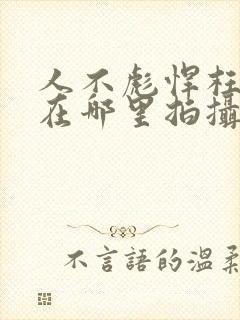 人不彪悍枉
在哪里拍攝
不言語的溫柔